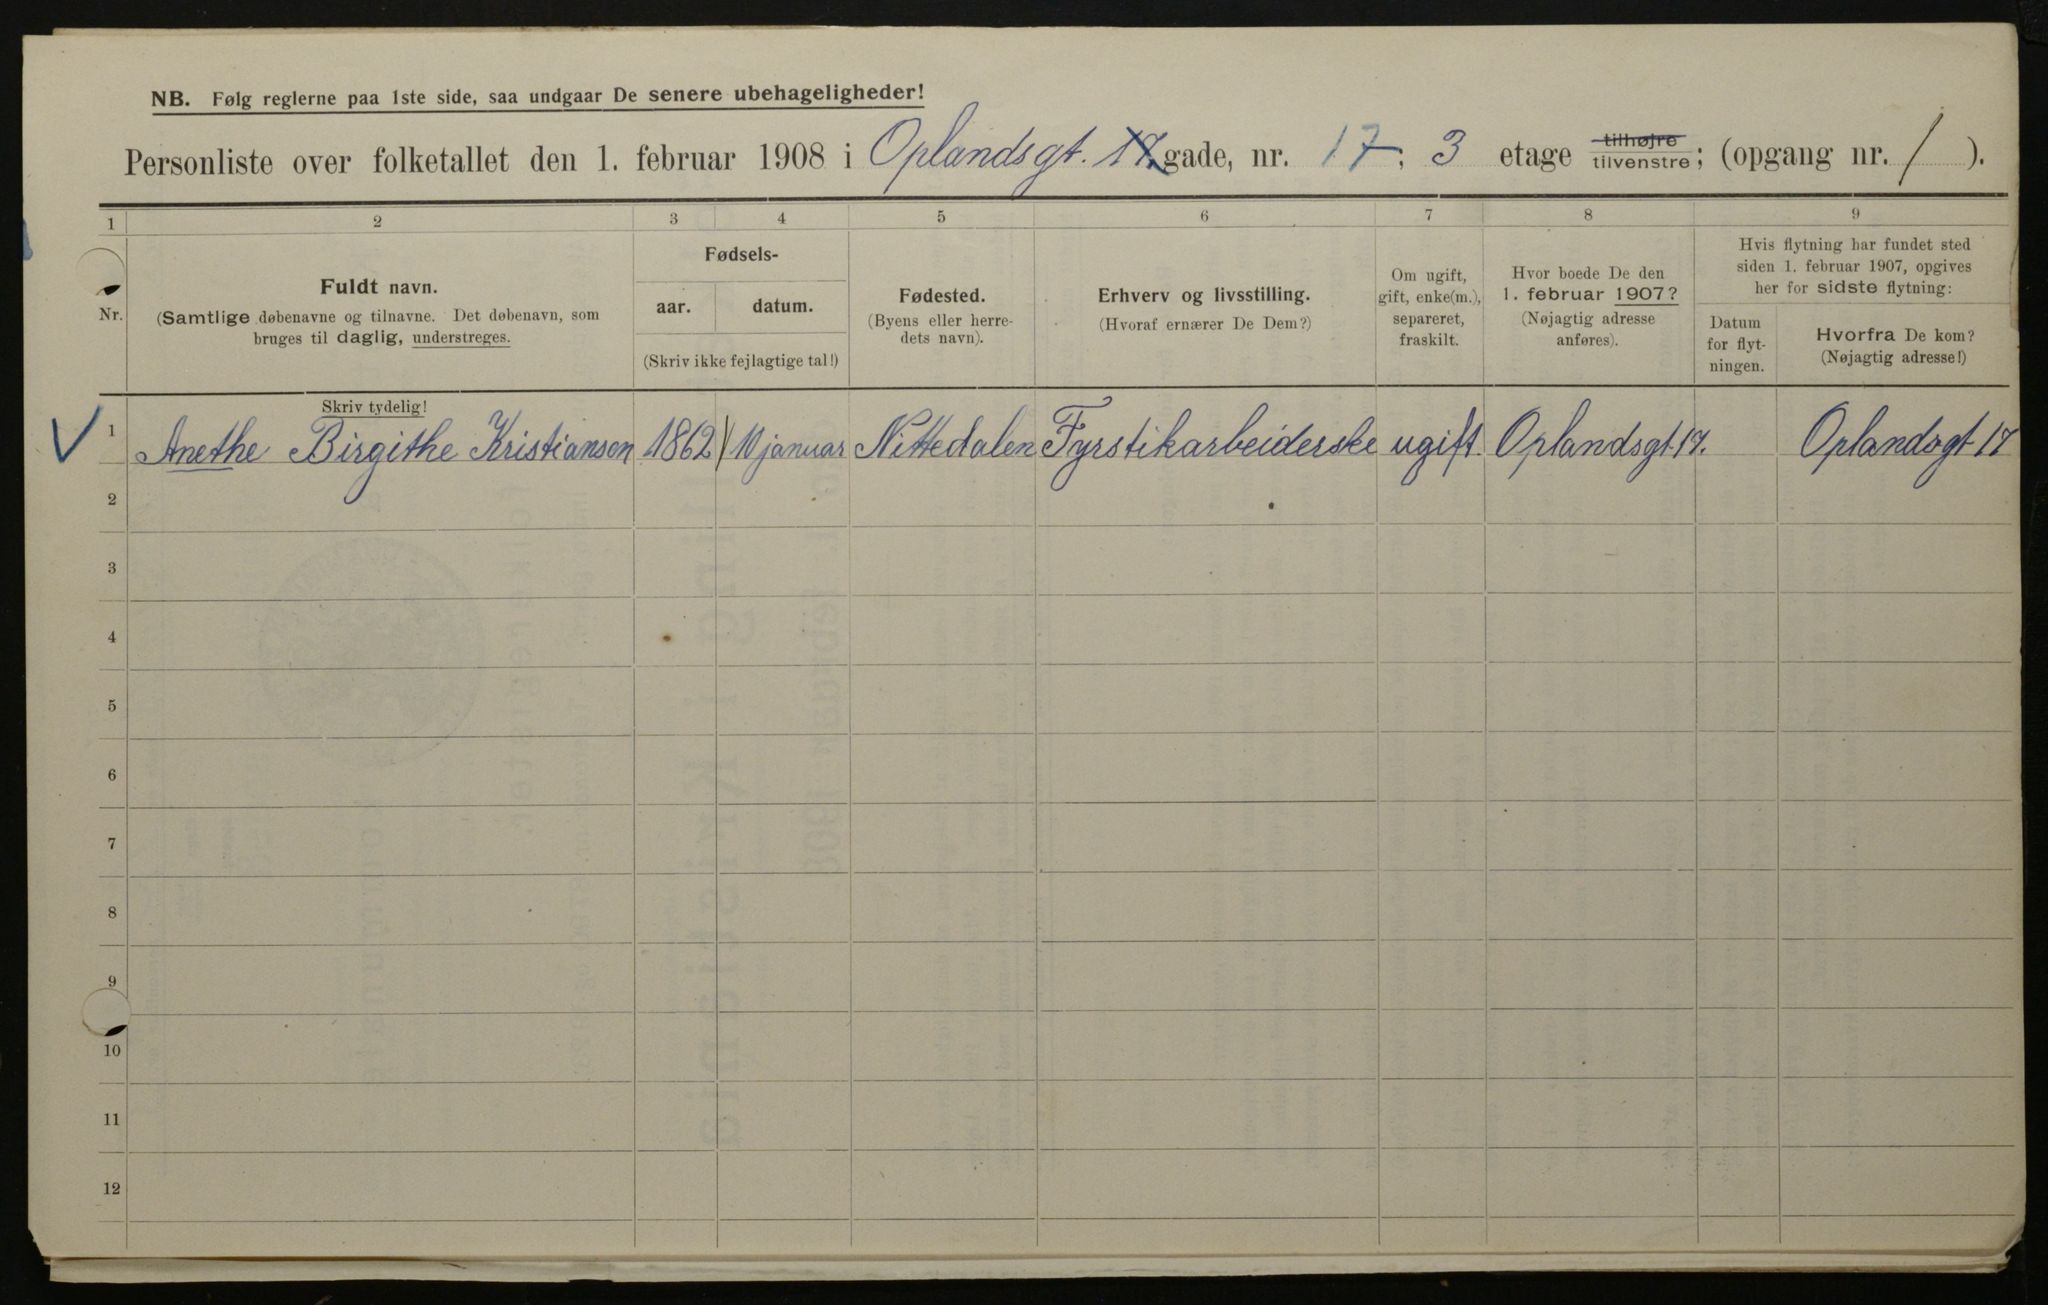 NB. Følg reglerne paa 1ste side, saa undgaar De senere ubehageligheder!
Personliste over folketallet den 1. februar 1908 i Oplandsgt. 17. gade, nr. 17; 3 etage tilhøjre tilvenstre; (opgang nr. / ).
1 2 3 4 5 6 7 8 9
Nr.
Fuldt navn.
(Samtlige døbenavne og tilnavne. Det døbenavn, som
bruges til daglig, understreges.
Fødsels-
aar. datum.
(Skriv ikke fejlagtige tal!)
Fødested.
(Byens eller herre-
dets navn).
Erhverv og livsstilling.
(Hvoraf ernærer De Dem?)
Om ugift,
gift, enke(m.),
separeret,
fraskilt.
Hvor boede De den
1. februar 1907?
(Nøjagtig adresse
anføres).
Hvis flytning har fundet sted
siden 1. februar 1907, opgives
her for sidste flytning:
Datum
for flyt-
ningen.
Hvorfra De kom?
(Nøjagtig adresse!)
Skriv tydelig!
1 Anethe Birgithe Kristiansen 1862 10 januar Nittedalen Fyrstikarbeiderske ugift Oplandsgt. 17. Oplandsgt 17
2
3
4
5
6
7
8
9
10
11
12